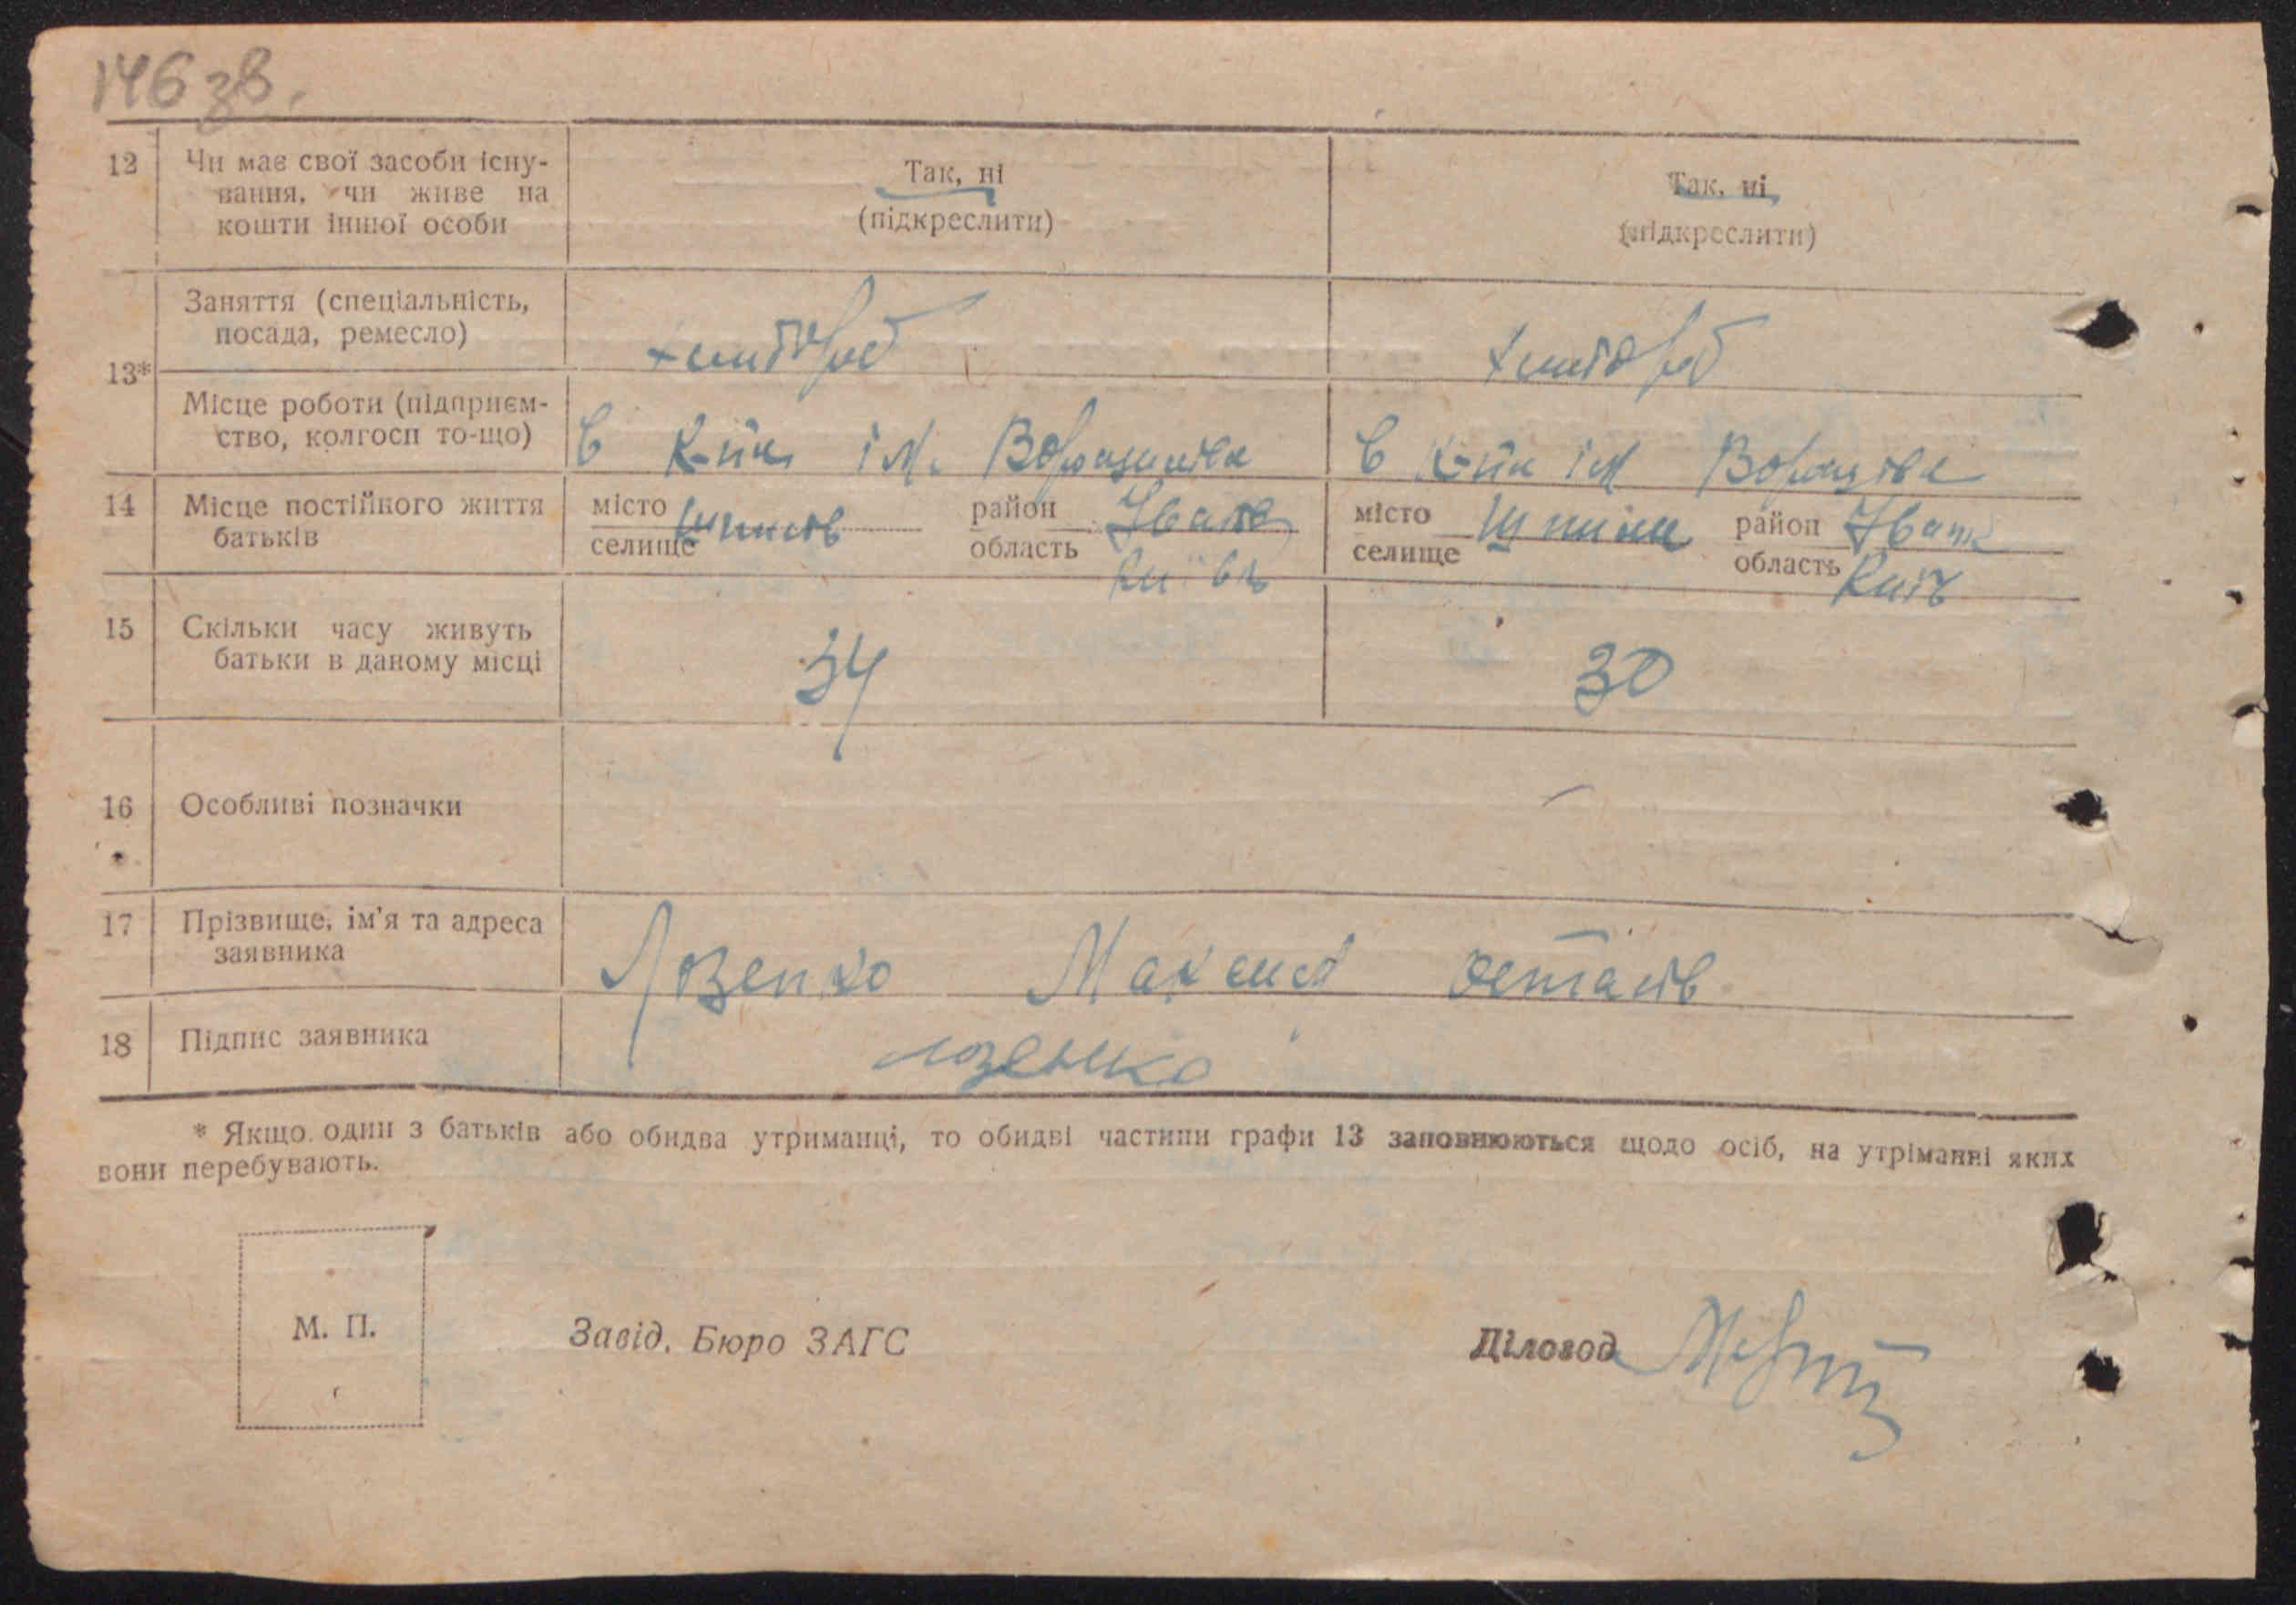 146 зв.
12 Чи має свої засоби існу-
вання, чи живе на
кошти іншої особи
Так, ні
(підкреслити)
Так, ні
(підкреслити)
13*
Заняття (спеціальність,
посада, ремесло)
хлібороб
хлібороб
Місце роботи (підприєм-
ство, колгосп то-що)
В К-пі ім. Ворошилова
В К-пі ім
14 Місце постійного життя
батьків
місто
селище
район
область
місто
селище
район
область
15 Скільки часу живуть
батьки в даному місці
34
30
16 Особливі позначки
17 Прізвище, ім'я та адреса
заявника
Лозенко Максим
18 Підпис заявника
лозенко
* Якщо один з батьків або обидва утриманці, то обидві частини графи 13 заповнюються щодо осіб, на утріманні яких
вони перебувають.
М. П.
Завід. Бюро ЗАГС
Діловод